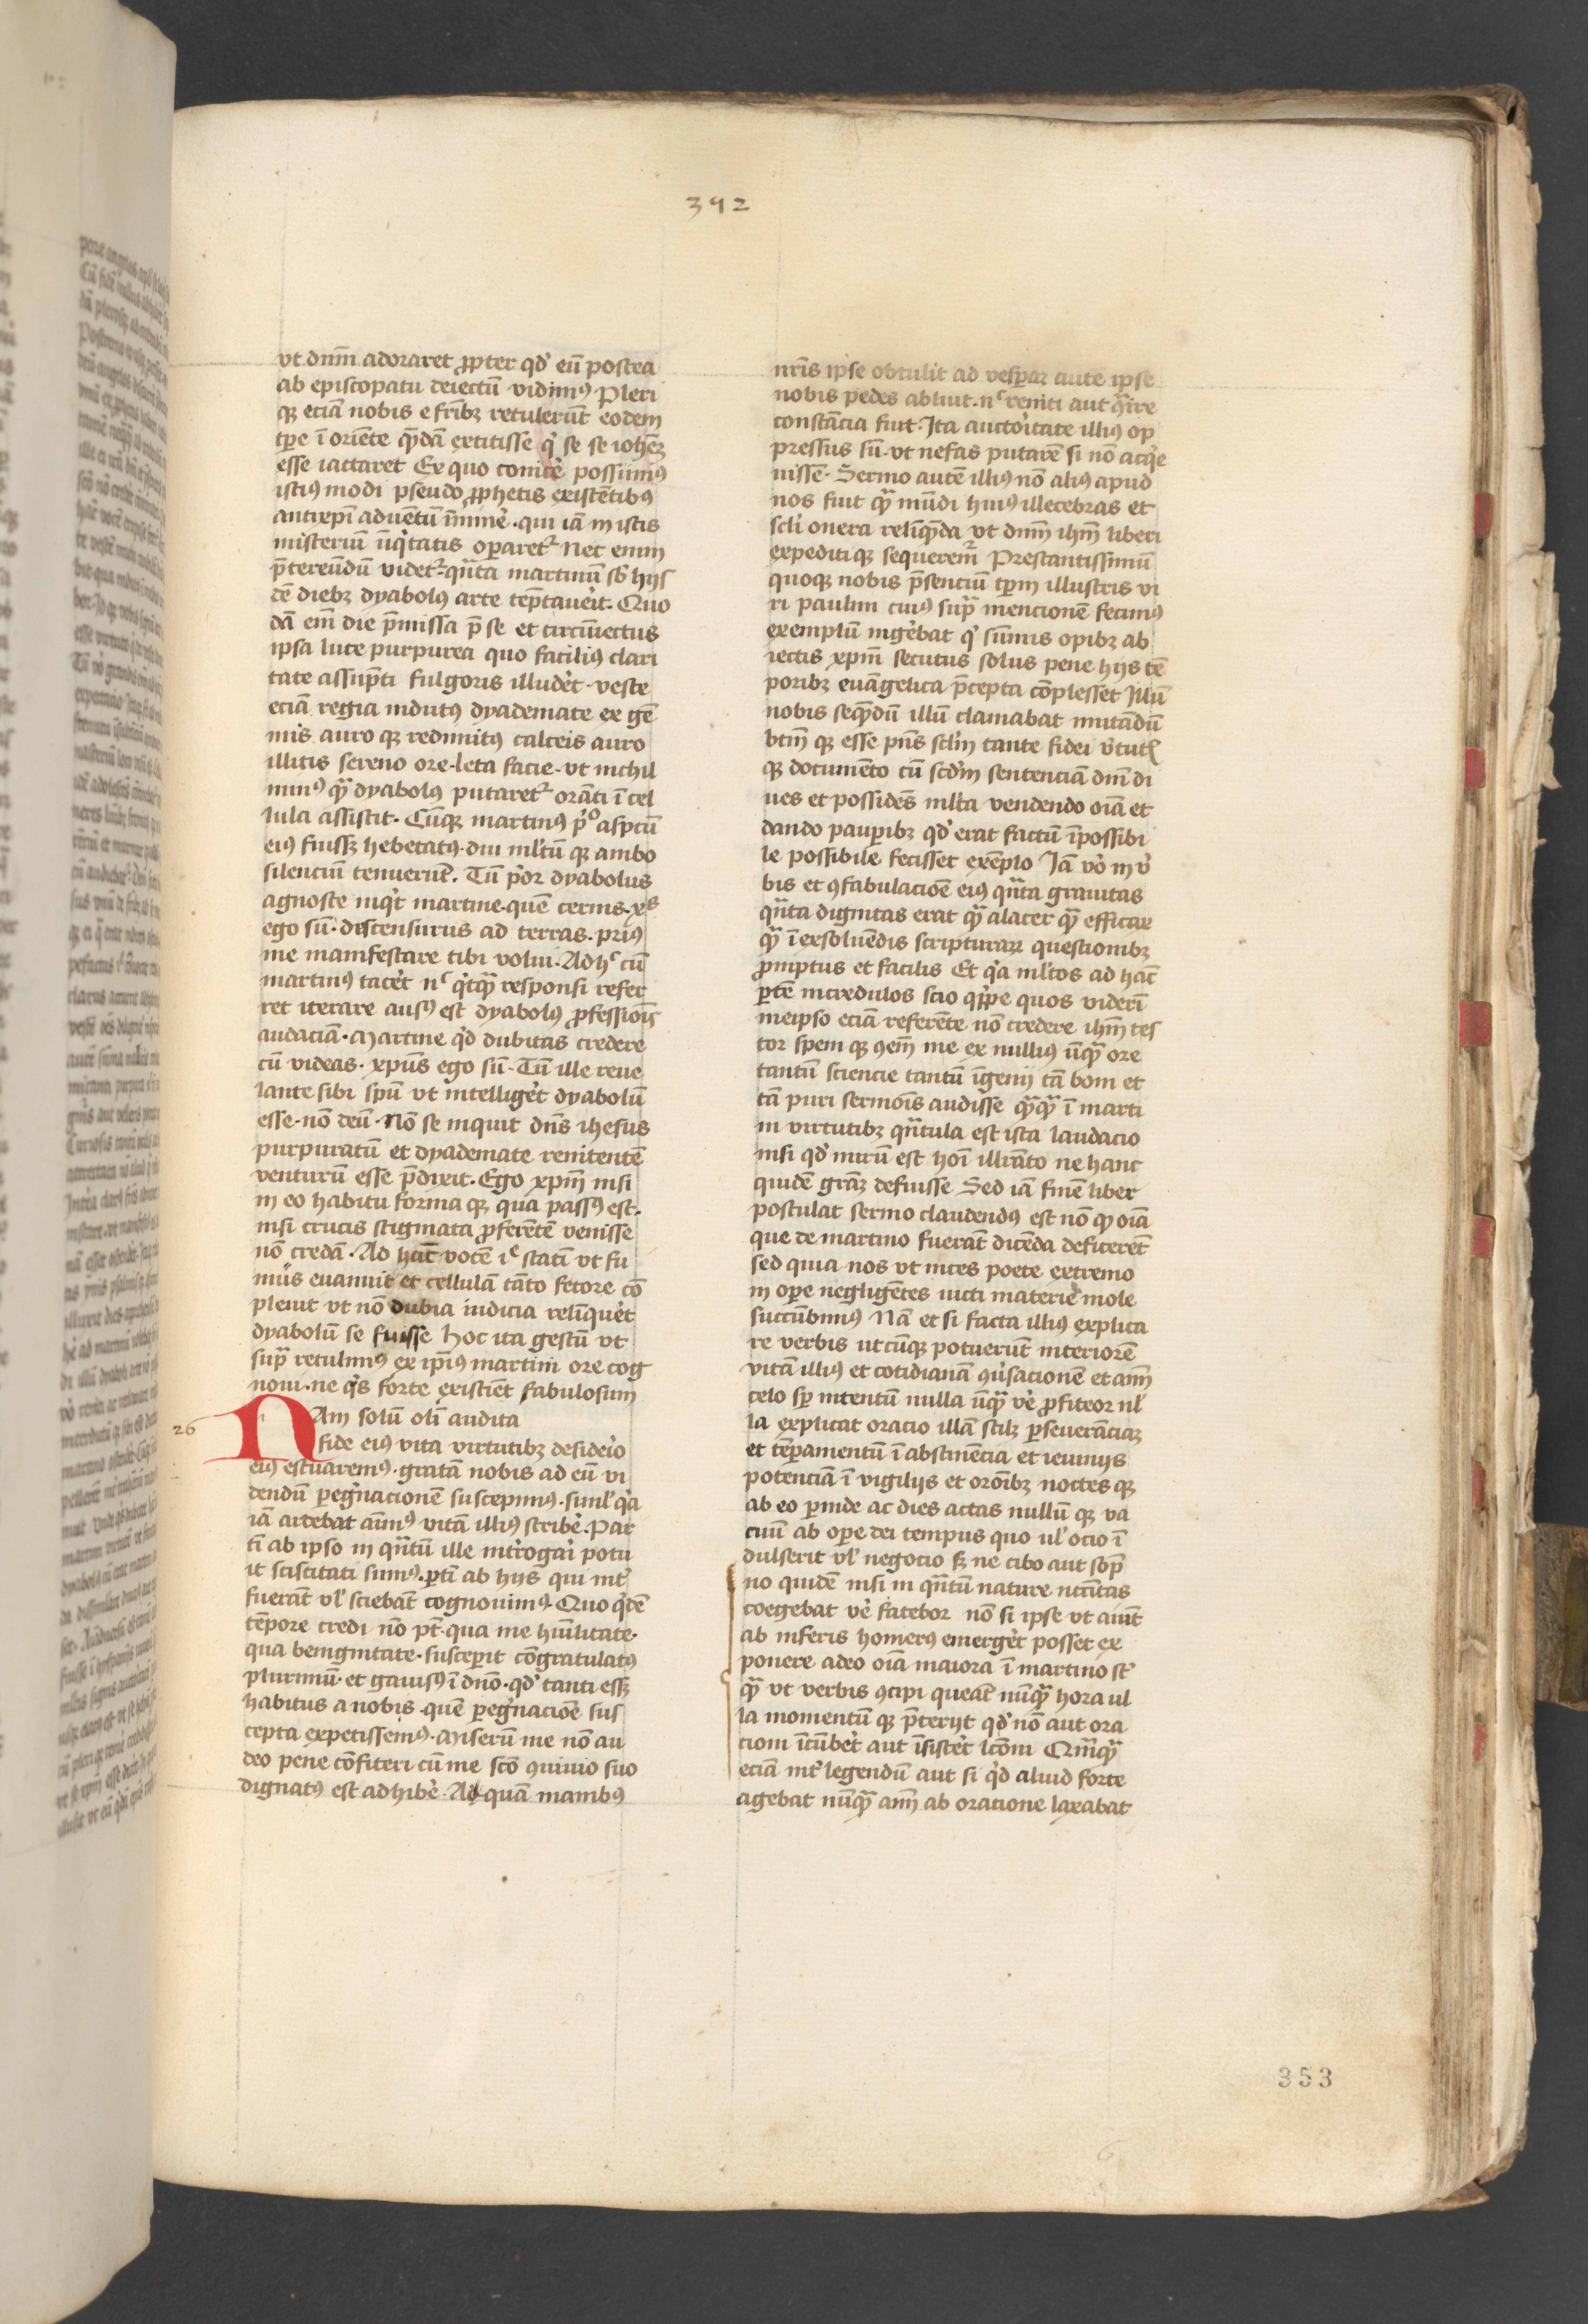 392
vt dn̄m adoraret ꝓpter qd' eū postea
ab episcopatu deiectū vidimꝰ Pleri
qꝫ eciā nobis e fr̄ibꝫ retulerūt eodem
tꝑe ī oriēte qͣdā extitisse qͥ se se ioh̄eꝫ
esse iactaret Ex quo conice̓ possumꝰ
istiꝰ modi pseudo ꝓphetis existētibꝰ
antixp̄i aduētū īmine̓ · qui iā in istis
misteriū iīqͥtatis oꝑaretᷣ Nec enim
p̄tereūdū videtᷣ · qn̄ta martinū sb' hijs
dē diebꝫ dyabolꝰ arte tēptaue̓it · Quo
dā em̄ die p̄missa p̄ se et circūiectus
ipsa luce purpurea quo faciliꝰ clari
tate assūpti fulgoris illude̓t · veste
eciā regia indutꝰ dyademate ex gē
mis auro qꝫ redimitꝰ calceis auro
illitis sereno ore · leta facie · vt nichil
minꝰ qͣ dyabolꝰ putaretᷣ orāti ī cel
lula assistit · Cūqꝫ martinꝰ pͥº aspc̄u
eiꝰ fuissꝫ hebetatꝰ · diu ml'tū qꝫ ambo
silenciū tenuerūt · Tū pͥor dyabolus
agnosce inqͥt martine · quē cernis · xp̄s
ego sū · discensurus ad terras · priꝰ
me manifestare tibi volui · Ad hͨ cū
martinꝰ tace̓t nͨ qͥcqͣ responsi refer
ret iterare ausꝰ est dyabolꝰ ꝓfessiōis
audaciā · Martine qͥd dubitas credere
cū videas · xp̄us ego sū · Tū ille reue
lante sibi sp̄u vt intellige̓t dyabolū
esse · nō deū · Nō se inquit dn̄s ihesus
purpuratū et dyademate renitentē
venturū esse p̄dixit · Ego xp̄m nisi
in eo habitu forma qꝫ qua passꝰ est ·
nisi crucis stigmata ꝓferētē venisse
nō credā · Ad hāc vocē iͨ statī vt fu
mūs euanuit et cellulā tāto fetore cō
pleuit vt nō dubia iudicia relīque̓t
dyabolū se fuisse Hoc ita gestū vt
supͣ retulimꝰ ex ip̄iꝰ martini ore cog
noui · ne qͥs forte existiet fabulosum
26
NAm solū oli audita
fide eiꝰ vita virtutibꝫ deside̓io
eiꝰ estuaremꝰ · gratā nobis ad eū vi
dendū ꝑegͥnacionē suscepimꝰ · simul' qͥa
iā ardebat aīmꝰ vitā illiꝰ scribe̓ · Par
tī ab ipso in qn̄tū ille int̓rogari potu
it sciscitati sumꝰ · ꝑtī ab hijs qui int̓
fuerāt vl' sciebāt cognouimꝰ · Quo qͥdē
tēpore credi nō pt̄ · qua me hūilitate ·
qua benignitate · susceꝑit cōgratulatꝰ
plurimū · et gauisꝰ ī dn̄o · qd' tanti essꝫ
habitus a nobis · quē ꝑegͥnacioē sus
cepta expetissemꝰ · Miserū me nō au
deo pene cōfiteri cū me scō ꝯuiuio suo
dignatꝰ est adhibe̓ · Ad quā manibꝰ
nr̄is ipse obtulit ad vesꝑaꝝ aute ipse
nobis pedes abluit · nͨ reniti aut qͣire
constācia fuit · Ita auctoͥitate illiꝰ op
pressus sū · vt nefas putarē si nō acqͥe
uissē · Sermo autē illiꝰ nō aliꝰ apud
nos fuit qͣ mūdi huiꝰ illecebras et
scl'i onera relīqͣda vt dn̄m ih̄m liberi
expeditiqꝫ sequeremᷣ Prestantissimū
quoqꝫ nobis p̄senciū tꝑm illustris vi
ri paulini cuiꝰ supͣ mencionē fecimꝰ
exemplū inge̓bat qͥ sūmis opibꝫ ab
iectis xp̄m secutus solus pene hijs tē
poribꝫ euāgelica p̄cepta cōplesset Illū
nobis seqͣdū illū clamabat imitādū
btm̄ qꝫ esse pn̄s scl'm tante fidei v̓tutꝭ
qꝫ documēto cū scd'm sentenciā dn̄i di
ues et possidēs ml'ta vendendo oīa et
dando pauꝑibꝫ qd' erat factū īpossibi
le possibile fecisset exēplo Iā vo̓ in v̓
bis et ꝯfabulacioē eiꝰ qn̄ta grauitas
qn̄ta dignitas erat qͣ alacer qͣ efficax
qͣ ī exsoluēdis scripturaꝝ questionibꝫ
ꝓmptus et facilis Et qͥa ml'tos ad hāc
ꝑtē incredulos scio qͥppe quos viderī
meipso eciā referēte nō credere ih̄m tes
tor spem qꝫ ꝯem̄ me ex nullius ūqͣ ore
tantū sciencie tantū īgenij tā boni et
tā puri sermōis audisse qͣqͣ ī marti
ni virtutibꝫ qn̄tula est ista laudacio
nisi qd' mirū est hoī illr̄ato ne hanc
quidē grāꝫ defuisse Sed iā finē liber
postulat sermo claudendꝰ est nō qꝫ oīa
que de martino fuerāt dicēda deficerēt
sed quia nos vt inces poete extremo
in oꝑe negligētes iucti materie mole
succūbimꝰ Nā et si facta illiꝰ explica
re verbis utcūqꝫ potuerūt interiorē
vitā illiꝰ et cotidianā ꝯuͥsacionē et aīm̄
celo sꝑ intentū nulla ūqͣ ve̓ ꝓfiteor nl'
la explicat oracio illā scilꝫ ꝑseuerāciaꝫ
et tēꝑamentū ī abstinēcia et ieiunijs
potenciā ī vigilijs et orōibꝫ noctes qꝫ
ab eo ꝑinde ac dies actas nullū qꝫ va
cuū ab oꝑe dei tempus quo ul' ocio ī
dulserit vl' negocio sꝫ ne cibo aut sop̄
no quidē nisi in qn̄tū nature nc̄cītas
coegebat ve̓ fatebor nō si ipse vt aiūt
ab inferis homerꝰ emerge̓t posset ex
ponere adeo oīa maiora ī martino sͭ
qͣ vt verbis ꝯcipi queāt nūqͣ hora ul
la momentū qꝫ p̄terijt qd' nō aut ora
cioni īcūbe̓t aut īsiste̓t lc̄oni Qm̄qͣ
eciā int̓ legendū aut si qͥd aliud forte
agebat nūqͣ aīm̄ ab oracione laxabat
353